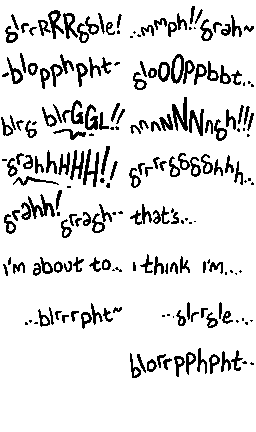 glrrRRRggle! ...mmph!! grah~
-blopphpht- gloOOPpbbt..
blrg- blrGGL!! nnnNNNngh!!!
-grahhHHH!! grrrrggggghhh..
grahh! gragh-- that's...
i'm about to... i think i'm....
...blrrrpht~ ...glrrgle....
blorrpphpht--